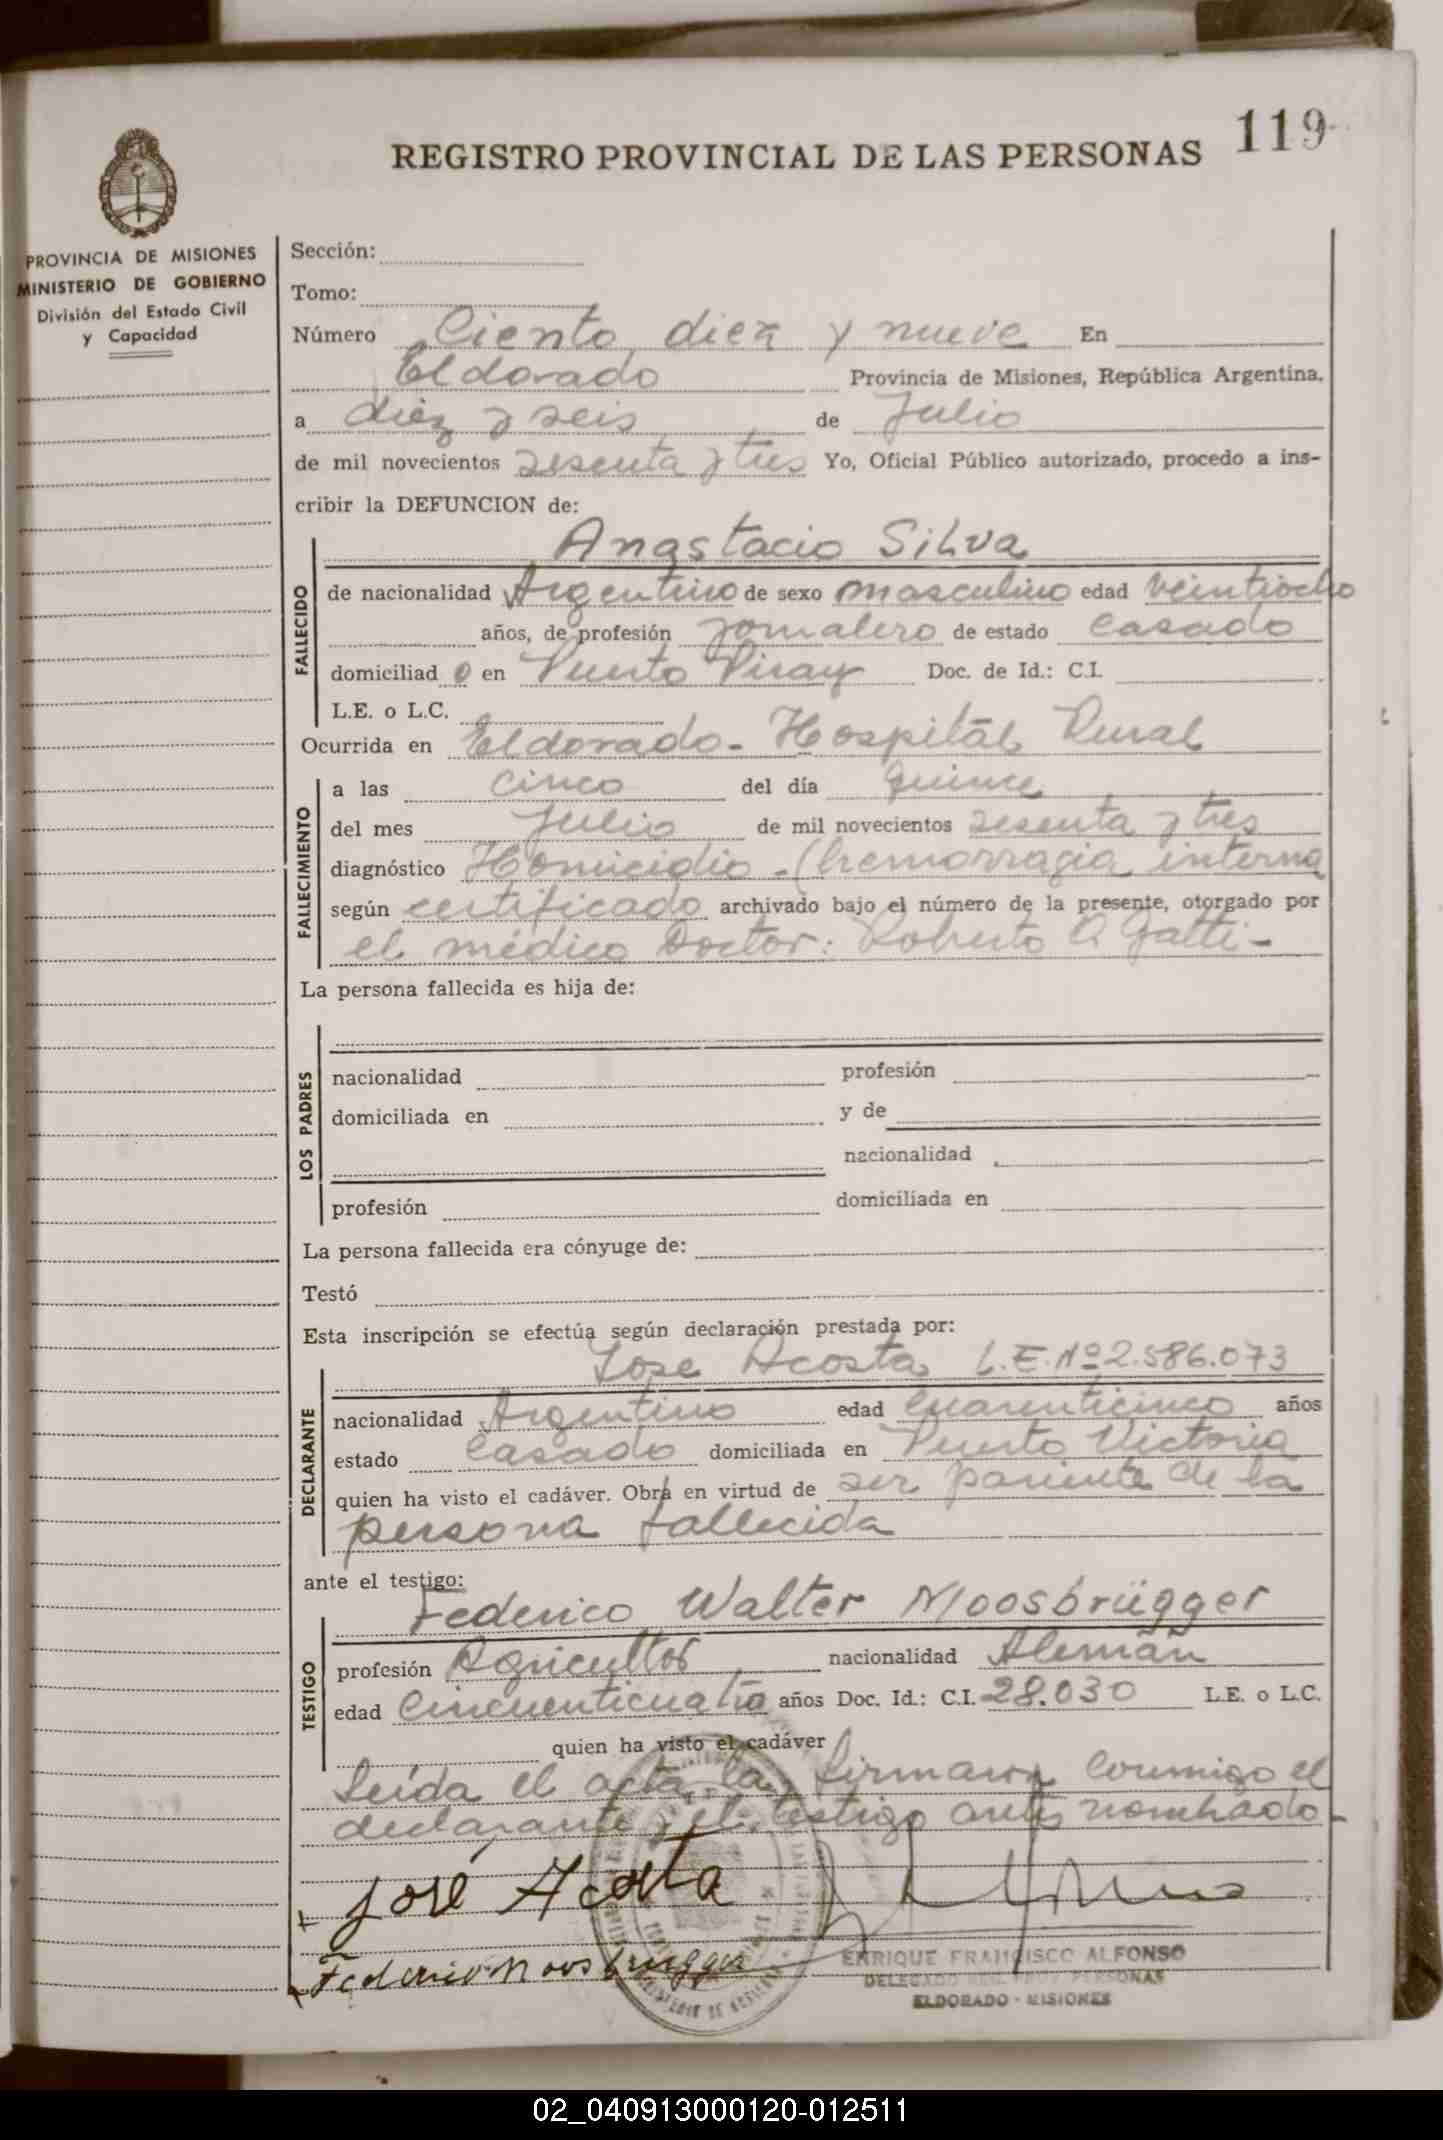 119
REGISTRO PROVINCIAL DE LAS PERSONAS
PROVINCIA DE MISIONES
MINISTERIO DE GOBIERNO
División del Estado Civil
y Capacidad
Sección:
Tomo:
Número Ciento diez y nueve En
Eldorado Provincia de Misiones, República Argentina,
a diez y seis de Julio
de mil novecientos sesenta y tres Yo, Oficial Público autorizado, procedo a ins-
cribir la DEFUNCION de:
Anastacio Silva
FALLECIDO
de nacionalidad Argentino de sexo masculino edad veintiocho
años, de profesión Jornalero de estado Casado
domiciliad o en Puerto Piray Doc. de Id.: C.I.
L.E. o L.C.
Ocurrida en Eldorado - Hospital Rural
FALLECIMIENTO
a las cinco del día quince
del mes Julio de mil novecientos sesenta y tres
diagnóstico Homicidio - (hemorragia interna
según certificado archivado bajo el número de la presente, otorgado por
el médico Doctor: Roberto A Gatti -
La persona fallecida es hija de:
LOS PADRES
nacionalidad profesión
domiciliada en y de
nacionalidad
profesión domiciliada en
La persona fallecida era cónyuge de:
Testó
Esta inscripción se efectúa según declaración prestada por:
Jose Acosta L.E. Nº 2.586.073
DECLARANTE
nacionalidad Argentino edad cuarenticinco años
estado Casado domiciliada en Puerto Victoria
quien ha visto el cadáver. Obra en virtud de ser pariente de la
persona fallecida
ante el testigo:
Federico Walter Moosbrügger
TESTIGO
profesión Agricultor nacionalidad Alemán
edad Cincuenticuatro años Doc. Id.: C.I. 28.030 L.E. o L.C.
quien ha visto el cadáver
Leída el acta, la firmaron conmigo el
declarante y el testigo antes nombrado -
José Acosta
Federico Moosbrugger
ENRIQUE FRANCISCO ALFONSO
DELEGADO REG. PROV. PERSONAS
ELDORADO - MISIONES
02_040913000120-012511